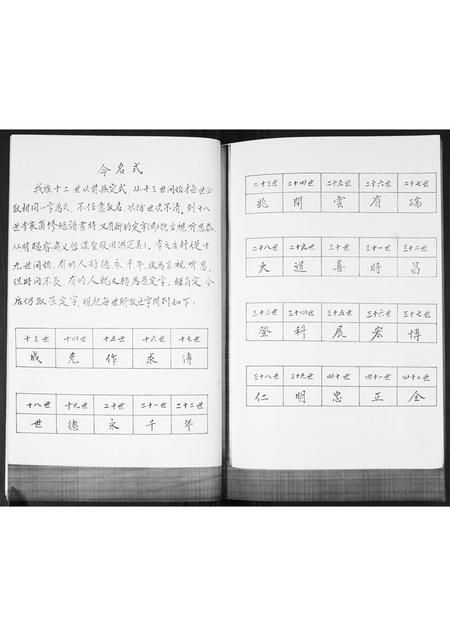 命名式
我族十二世以前無定式，从十三世开始每世必
取相同一字為式，不任意取名，以防世次不清。到十八
世李家 修 譜書時，又有新的定字（即 言視听思恭
从明聪睿肅乂哲謀聖 ）。 从
九世间始，有的人将德、永、千、年、改為言、視、听、思，
但時间不長，有的人就又 為原定字，經肯定今
后仍取原定字，現把每世所取之字開列如下：
十三世 十四世 十五世 十六世 十七世
成 克 作 求 傅
十八世 十九世 二十世 二十一世 二十二世
世 德 永 千 年
二十三世 二十四世 二十五世 二十六世 二十七世
兆 開 雲 有 瑞
二十八世 二十九世 三十世 三十一世 三十二世
大 道 喜 時 昌
三十三世 三十四世 三十五世 三十六世 三十七世
登 科 展 宏 博
三十八世 三十九世 四十世 四十一世 四十二世
仁 明 忠 正 全